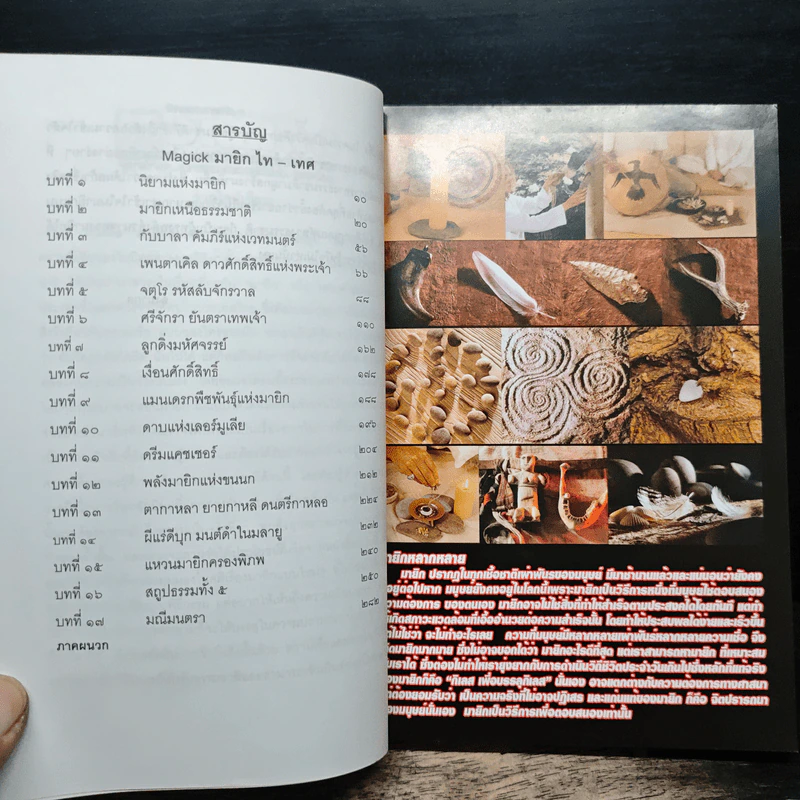 สารบัญ
Magick มายิก ไท – เทศ
บทที่ ๑ นิยามแห่งมายิก ๑๐
บทที่ ๒ มายิกเหนือธรรมชาติ ๒๐
บทที่ ๓ กับบาลา คัมภีร์แห่งเวทมนตร์ ๕๖
บทที่ ๔ เพนตาเคิล ดาวศักดิ์สิทธิ์แห่งพระเจ้า ๖๖
บทที่ ๕ จตุโร รหัสลับจักรวาล ๘๘
บทที่ ๖ ศรีจักรา ยันตราเทพเจ้า ๑๑๐
บทที่ ๗ ลูกดิ่งมหัศจรรย์ ๑๖๒
บทที่ ๘ เงื่อนศักดิ์สิทธิ์ ๑๗๘
บทที่ ๙ แมนเดรกพืชพันธุ์แห่งมายิก ๑๘๘
บทที่ ๑๐ ดาบแห่งเลอร์มูเลีย ๑๙๖
บทที่ ๑๑ ดรีมแคชเชอร์ ๒๐๔
บทที่ ๑๒ พลังมายิกแห่งขนนก ๒๑๒
บทที่ ๑๓ ตากาหลา ยายกาหลี ดนตรีกาหลอ ๒๒๔
บทที่ ๑๔ ผีแร่ดีบุก มนต์ดำในมลายู ๒๓๒
บทที่ ๑๕ แหวนมายิกครองพิภพ ๒๔๐
บทที่ ๑๖ สถูปธรรมทั้ง ๕ ๒๕๐
บทที่ ๑๗ มณีมนตรา ๒๘๒
ภาคผนวก
ายิกหลากหลาย
มายิก ปรากฏในทุกเชื้อชาติเผ่าพันธุ์ของมนุษย์ มีมาช้านานแล้วและแน่นอนว่ายังคง
อยู่ต่อไปหาก มนุษย์ยังคงอยู่ในโลกนี้เพราะมายิกเป็นวิธีการหนึ่งที่มนุษย์ใช้ตอบสนอง
ความต้องการ ของตนเอง มายิกอาจไม่ใช่สิ่งที่ทำให้สำเร็จตามประสงค์ได้โดยทันที แต่ทำ
ให้เกิดสภาวะแวดล้อมที่เอื้ออำนวยต่อความสำเร็จนั้น โดยทำให้ประสบผลได้ง่ายและเร็วขึ้น
ไม่ใช่ว่า จะไม่ทำอะไรเลย ความที่มนุษย์มีหลากหลายเผ่าพันธุ์หลากหลายความเชื่อ จึง
เกิดมายิกมากมาย ซึ่งไม่อาจบอกได้ว่า มายิกอะไรดีที่สุด แต่เราสามารถหามายิก ที่เหมาะสม
กับเราได้ ซึ่งต้องไม่ทำให้เรายุ่งยากกับการดำเนินวิถีชีวิตประจำวันเกินไปซึ่งหลักที่แท้จริง
ของมายิกก็คือ "กิเลส เพื่อบรรลุกิเลส" นั่นเอง อาจแตกต่างกับความต้องการทางศาสนา
ต้องยอมรับว่า เป็นความจริงที่ไม่อาจปฏิเสธ และแก่นแท้ของมายิก ก็คือ จิตปรารถนา
ของมนุษย์นั่นเอง มายิกเป็นวิธีการเพื่อตอบสนองเท่านั้น